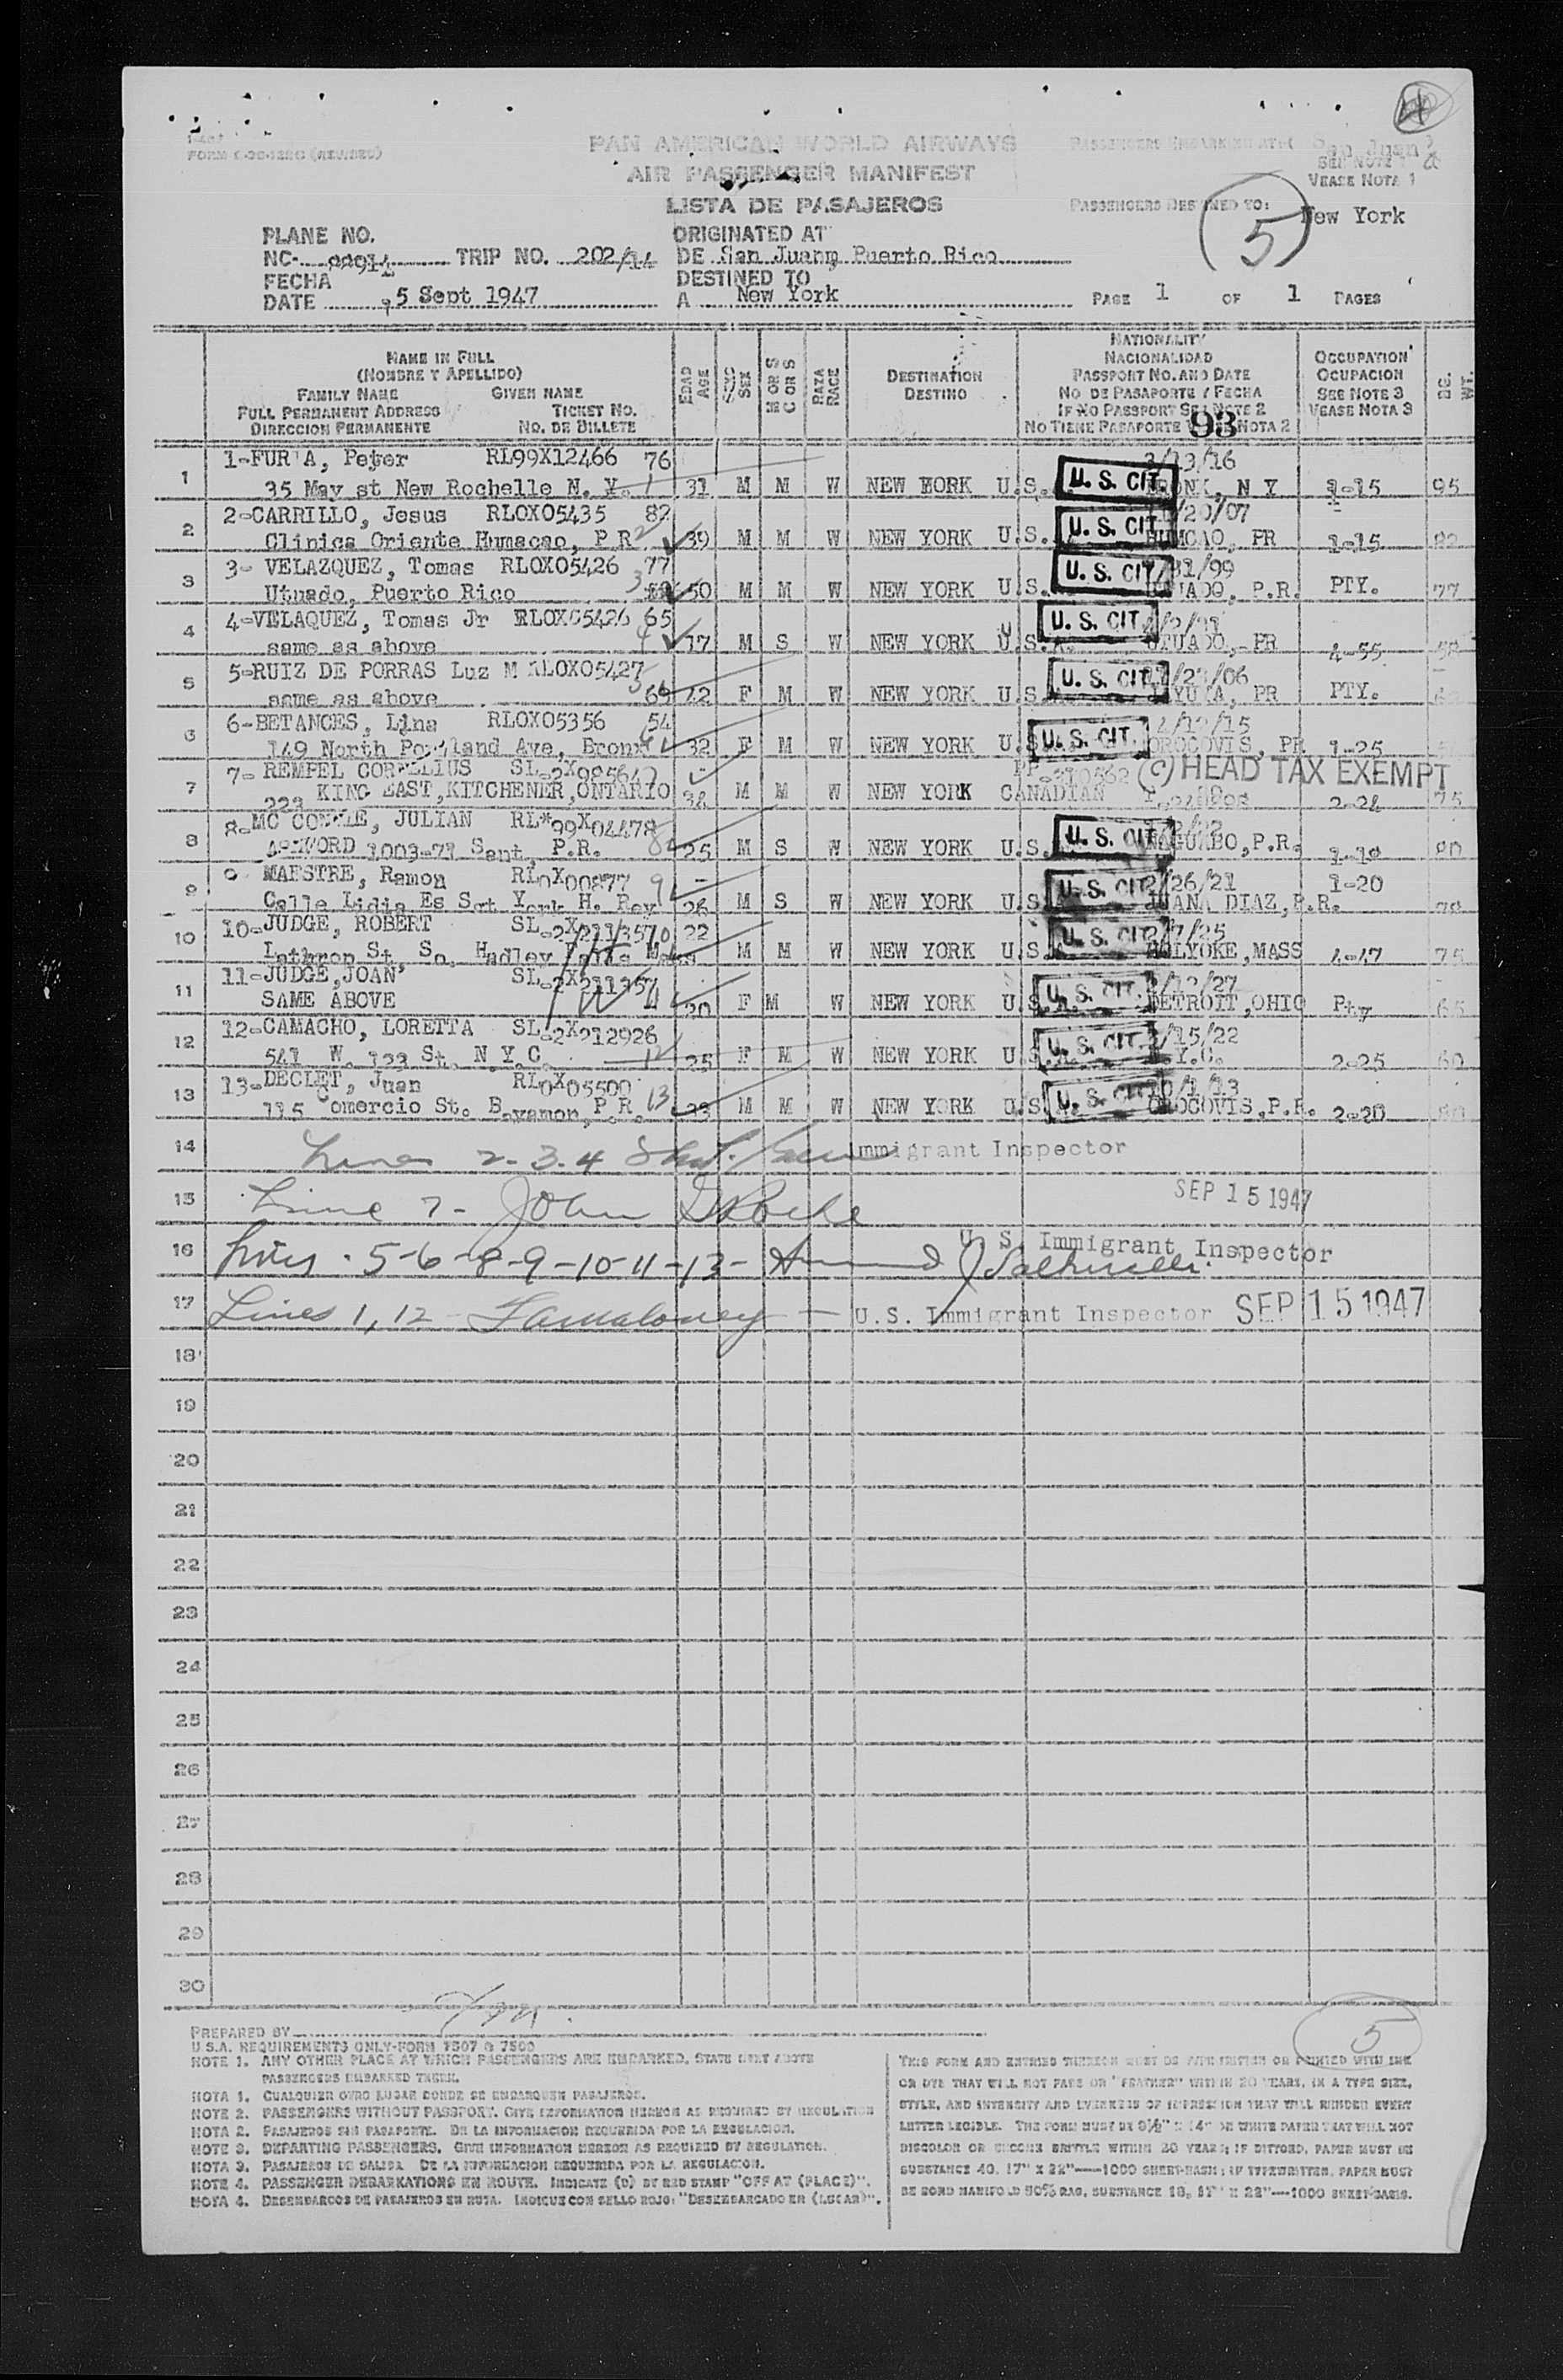 FORM (REVISED)
PAN AMERICAN WORLD AIRWAYS
AIR PASSENGER MANIFEST
LISTA DE PASAJEROS
PASSENGERS EMBARKING AT: San Juan
SEE NOTE 1
VEASE NOTA 1
PASSENGERS DESTINED TO: New York
(5)
PLANE NO.
NC- TRIP NO. 202/14
FECHA
DATE 5 Sept 1947
ORIGINATED AT
DE San Juanm Puerto Rico
DESTINED TO
A New York
PAGE 1 OF 1 PAGES
NAME IN FULL
(NOMBRE Y APELLIDO)
FAMILY NAME GIVEN NAME
FULL PERMANENT ADDRESS TICKET NO.
DIRECCION PERMANENTE NO. DE BILLETE
EDAD AGE
SEXO SEX
M OR S C OR S
RAZA RACE
DESTINATION
DESTINO
NATIONALITY
NACIONALIDAD
PASSPORT NO. AND DATE
NO DE PASAPORTE Y FECHA
IF NO PASSPORT SEE NOTE 2
NO TIENE PASAPORTE NOTA 2
93
OCCUPATION
OCUPACION
SEE NOTE 3
VEASE NOTA 3
WT.
1 1-FUR A, Peter RL99X12466 76 3/13/16
35 May st New Rochelle N. Y. 1 31 M M W NEW YORK U.S. U. S. CIT. BRONX, N Y 1-15 95
2 2-CARRILLO, Jesus RLOX05435 82 /20/07
Clinica Oriente Humacao, P.R 2 39 M M W NEW YORK U.S. U. S. CIT. HUMCAO, PR 1-15 82
3 3- VELAZQUEZ, Tomas RLOX05426 77 /31/99
Utuado, Puerto Rico 3 50 M M W NEW YORK U.S. U. S. CIT. UTUADO, P.R. PTY. 77
4 4-VELAQUEZ, Tomas Jr RLOX05426 65
same as above 4 17 M S W NEW YORK U.S.A. U. S. CIT. UTUADO, PR 4-55
5 5-RUIZ DE PORRAS Luz M RLOX05427 /06
same as above 5 42 F M W NEW YORK U.S. U. S. CIT. JAYUYA, PR PTY.
6 6-BETANCES, Lina RLOX05356 54 /12/15
149 North Portland Ave, Bronx 6 32 F M W NEW YORK U.S. U. S. CIT. OROCOVIS, PR 1-25
7 7- REMPEL CORNELIUS SL-2X995647 (c) HEAD TAX EXEMPT
223 KING EAST, KITCHENER, ONTARIO 34 M M W NEW YORK CANADIAN 2-24 75
8 8-MC CONNIE, JULIAN RL*99X04478
ASHFORD 1003-71 Sant, P.R. 8 25 M S W NEW YORK U.S. U. S. CIT. NAGUABO, P.R. 1-10 80
9 9 MAESTRE, Ramon RLOX00877 9 2/26/21 1-20
Calle Lidia Es Sgt York H. Rey 26 M S W NEW YORK U.S. U. S. CIT. JUANA DIAZ, P.R.
10 10-JUDGE, ROBERT SL-2X211357 10 22 /7/25
Lathrop St. So. Hadley Falls Mass M M W NEW YORK U.S. U. S. CIT. HOLYOKE, MASS 4-47 75
11 11-JUDGE, JOAN SL-2X211357 /12/27
SAME ABOVE 11 20 F M W NEW YORK U.S.A. U. S. CIT. DETROIT, OHIO Pty 65
12 12-CAMACHO, LORETTA SL-2X212926 /15/22
541 W. 123 St. N Y C 12 25 F M W NEW YORK U.S. U. S. CIT. N.Y.C. 2-25 60
13 13-DECLET, Juan RLOX05500 /1/13
115 Comercio St. Bayamon, P.R. 13 33 M M W NEW YORK U.S. U. S. CIT. OROCOVIS, P.R. 2-20 80
14 Lines 2-3-4 Immigrant Inspector
15 Line 7- John SEP 15 1947
16 Lines 5-6-8-9-10-11-13- U. S. Immigrant Inspector
17 Lines 1, 12 - U.S. Immigrant Inspector SEP 15 1947
18
19
20
21
22
23
24
25
26
27
28
29
30
PREPARED BY
5
U.S.A. REQUIREMENTS ONLY-FORM 7507 & 7500
NOTE 1. ANY OTHER PLACE AT WHICH PASSENGERS ARE EMBARKED, STATE NEXT ABOVE
PASSENGERS EMBARKED THERE.
NOTA 1. CUALQUIER OTRO LUGAR DONDE SE EMBARQUEN PASAJEROS.
NOTE 2. PASSENGERS WITHOUT PASSPORT. GIVE INFORMATION HEREON AS REQUIRED BY REGULATION
NOTA 2. PASAJEROS SIN PASAPORTE. DE LA INFORMACION REQUERIDA POR LA REGULACION.
NOTE 3. DEPARTING PASSENGERS. GIVE INFORMATION HEREON AS REQUIRED BY REGULATION.
NOTA 3. PASAJEROS DE SALIDA DE LA INFORMACION REQUERIDA POR LA REGULACION.
NOTE 4. PASSENGER DEBARKATIONS EN ROUTE. INDICATE (D) BY RED STAMP "OFF AT (PLACE)".
NOTA 4. DESEMBARCOS DE PASAJEROS EN RUTA. INDIQUE CON SELLO ROJO: "DESEMBARCADO EN (LUGAR)".
THIS FORM AND ENTRIES THEREON MUST BE TYPEWRITTEN OR PRINTED WITH INK
OR DYE THAT WILL NOT FADE OR "FEATHER" WITHIN 20 YEARS, IN A TYPE SIZE,
STYLE, AND INTENSITY AND EVENNESS OF IMPRESSION THAT WILL RENDER EVERY
LETTER LEGIBLE. THE FORM MUST BE 8½" X 14" ON WHITE PAPER THAT WILL NOT
DISCOLOR OR BECOME BRITTLE WITHIN 20 YEARS; IF DITTOED, PAPER MUST BE
SUBSTANCE 40, 17" X 22"—1000 SHEET-BASIS; IF TYPEWRITTEN, PAPER MUST
BE BOND MANIFOLD 50% RAG, SUBSTANCE 18, 17" X 22"—1000 SHEET-BASIS.